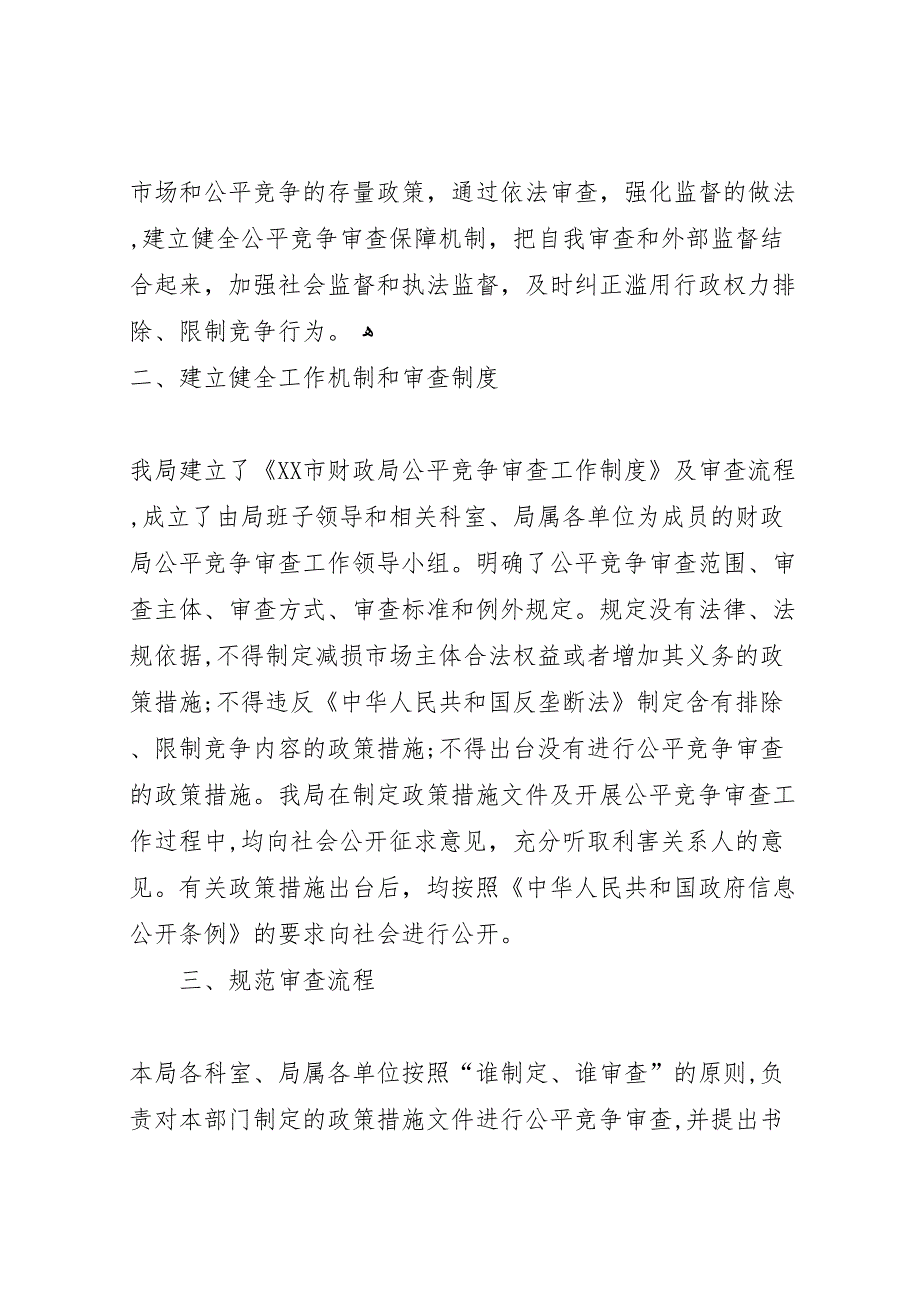 市场和公平竞争的存量政策，通过依法审查，强化监督的做法
,建立健全公平竞争审查保障机制，把自我审查和外部监督结
合起来，加强社会监督和执法监督，及时纠正滥用行政权力排
除、限制竞争行为。 ﻫ
二、建立健全工作机制和审查制度
我局建立了《XX市财政局公平竞争审查工作制度》及审查流程
,成立了由局班子领导和相关科室、局属各单位为成员的财政
局公平竞争审查工作领导小组。明确了公平竞争审查范围、审
查主体、审查方式、审查标准和例外规定。规定没有法律、法
规依据,不得制定减损市场主体合法权益或者增加其义务的政
策措施;不得违反《中华人民共和国反垄断法》制定含有排除
、限制竞争内容的政策措施;不得出台没有进行公平竞争审查
的政策措施。我局在制定政策措施文件及开展公平竞争审查工
作过程中,均向社会公开征求意见，充分听取利害关系人的意
见。有关政策措施出台后，均按照《中华人民共和国政府信息
公开条例》的要求向社会进行公开。
三、规范审查流程
本局各科室、局属各单位按照“谁制定、谁审查”的原则,负
责对本部门制定的政策措施文件进行公平竞争审查,并提出书